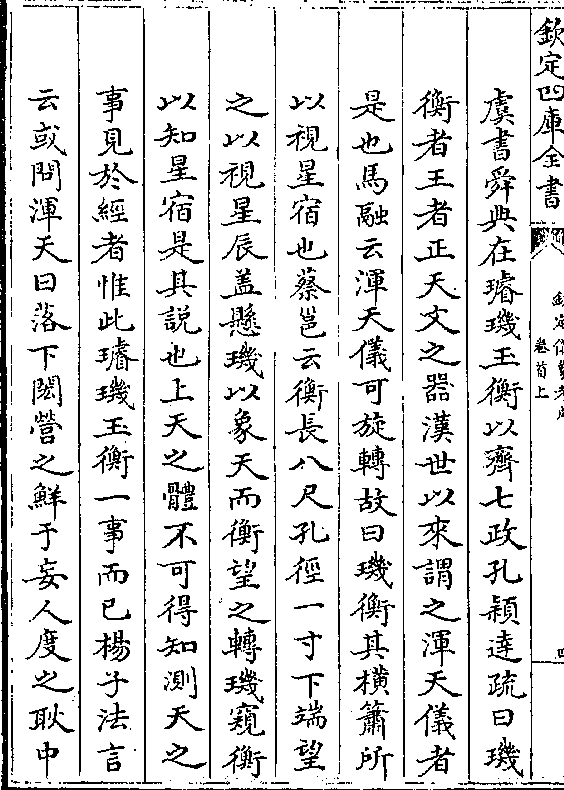 欽定四庫全書
欽定儀象考成
卷首上
四
虞書舜典在璿璣玉衡以齊七政孔穎達疏曰璣
衡者王者正天文之器漢世以來謂之渾天儀者
是也馬融云渾天儀可旋轉故曰璣衡其橫簫所
以視星宿也蔡邕云衡長八尺孔徑一寸下端望
之以視星辰盖懸璣以象天而衡望之轉璣窺衡
以知星宿是其說也上天之體不可得知測天之
事見於經者惟此璿璣玉衡一事而已楊子法言
云或問渾天曰落下閎營之鮮于妄人度之耿中